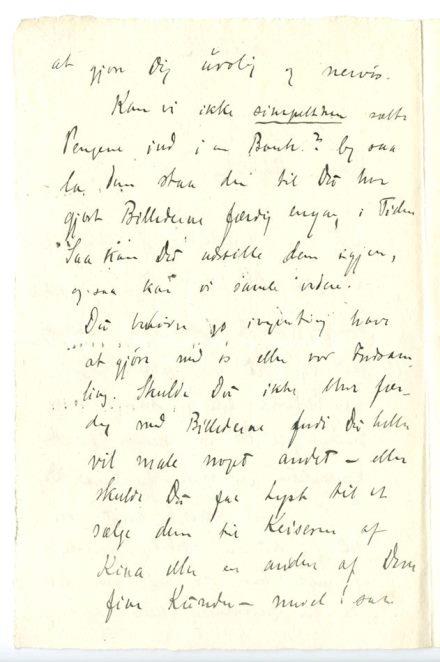 at gjøre Dig urolig og nervøs.
Kan vi ikke simpelthen sætte
Pengene ind i en Bank? og saa
la dem staa der til Du har
gjort Billederne færdig engang i Tiden
Saa kan Du udstille dem igjen,
og saa kan vi samle videre.
Du behøver jo ingenting have
at gjøre med os eller vor Indsam-
ling. Skulde Du ikke blive fær-
dig med Billederne fordi Du heller
vil male noget andet – eller
skulde Du faa Lyst til at
sælge dem til Keiseren af
Kina eller en anden af Dine
fine Kunder – nuvel! saa